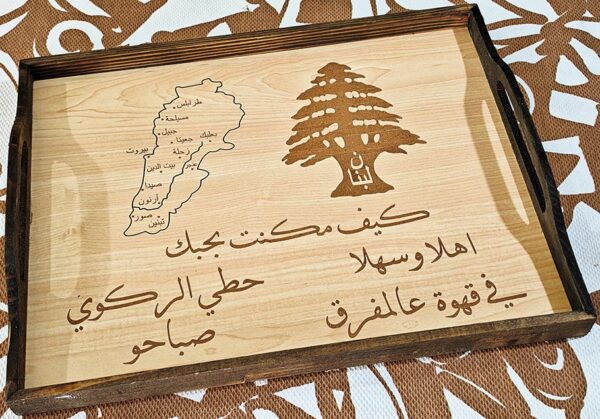 طرابلس
مسيلحة
جبيل
جعيتا
بعلبك
بيروت
زحلة
بيت الدين
عنجر
صيدا
أرنون
صور
تبنين
لبنان
كيف مكنت بحبك
اهلا وسهلا
حطي الركوي
في قهوة عالمفرق
صباحو